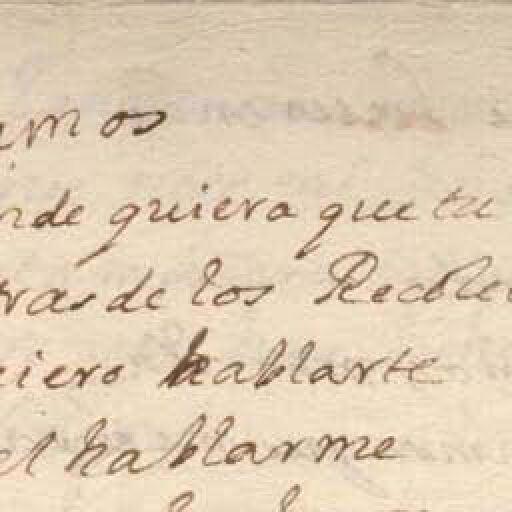 amos
nde quiera que tu
tras de los Recole
uiero hablarte
el hablarme